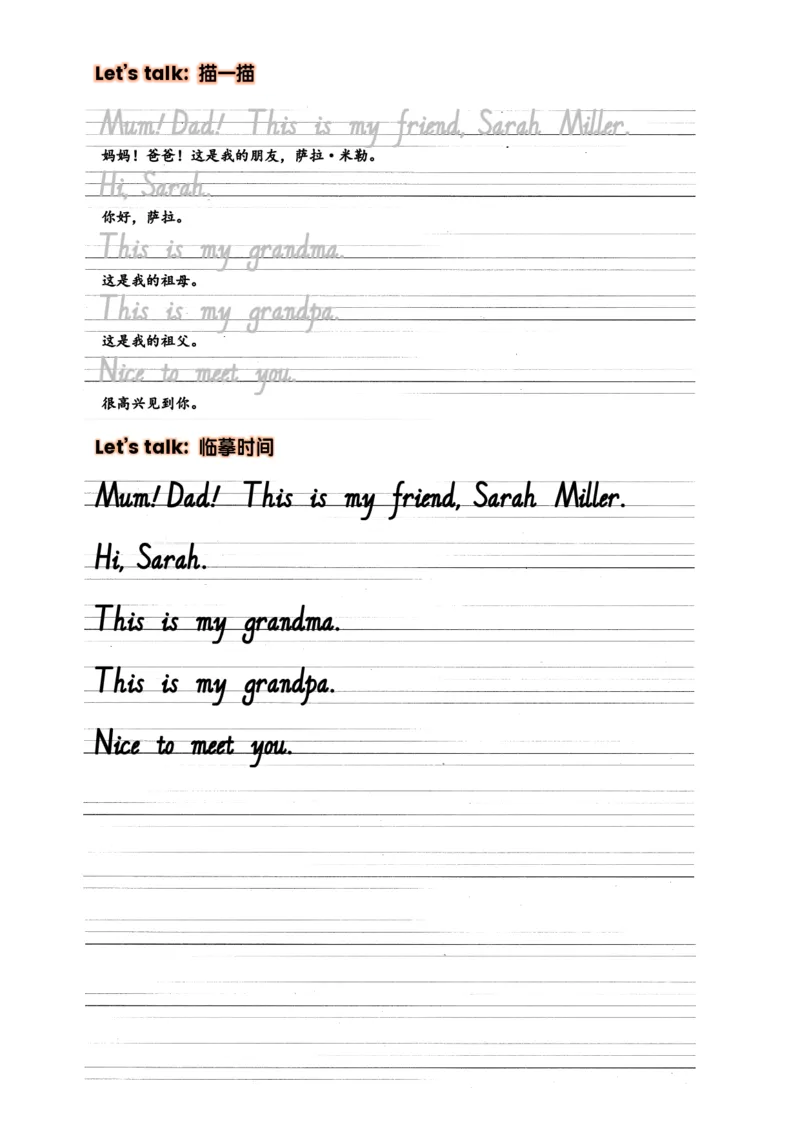 Let's talk: 描一描
Mum! Dad! This is my friend, Sarah Miller.
妈妈！爸爸！这是我的朋友，萨拉·米勒。
Hi, Sarah.
你好，萨拉。
This is my grandma.
这是我的祖母。
This is my grandpa.
这是我的祖父。
Nice to meet you.
很高兴见到你。
Let's talk: 临摹时间
Mum! Dad! This is my friend, Sarah Miller.
Hi, Sarah.
This is my grandma.
This is my grandpa.
Nice to meet you.